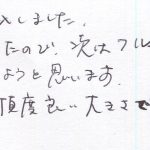 入しました。
たので、次はフル
ようと思います。
丁度良い大きさで